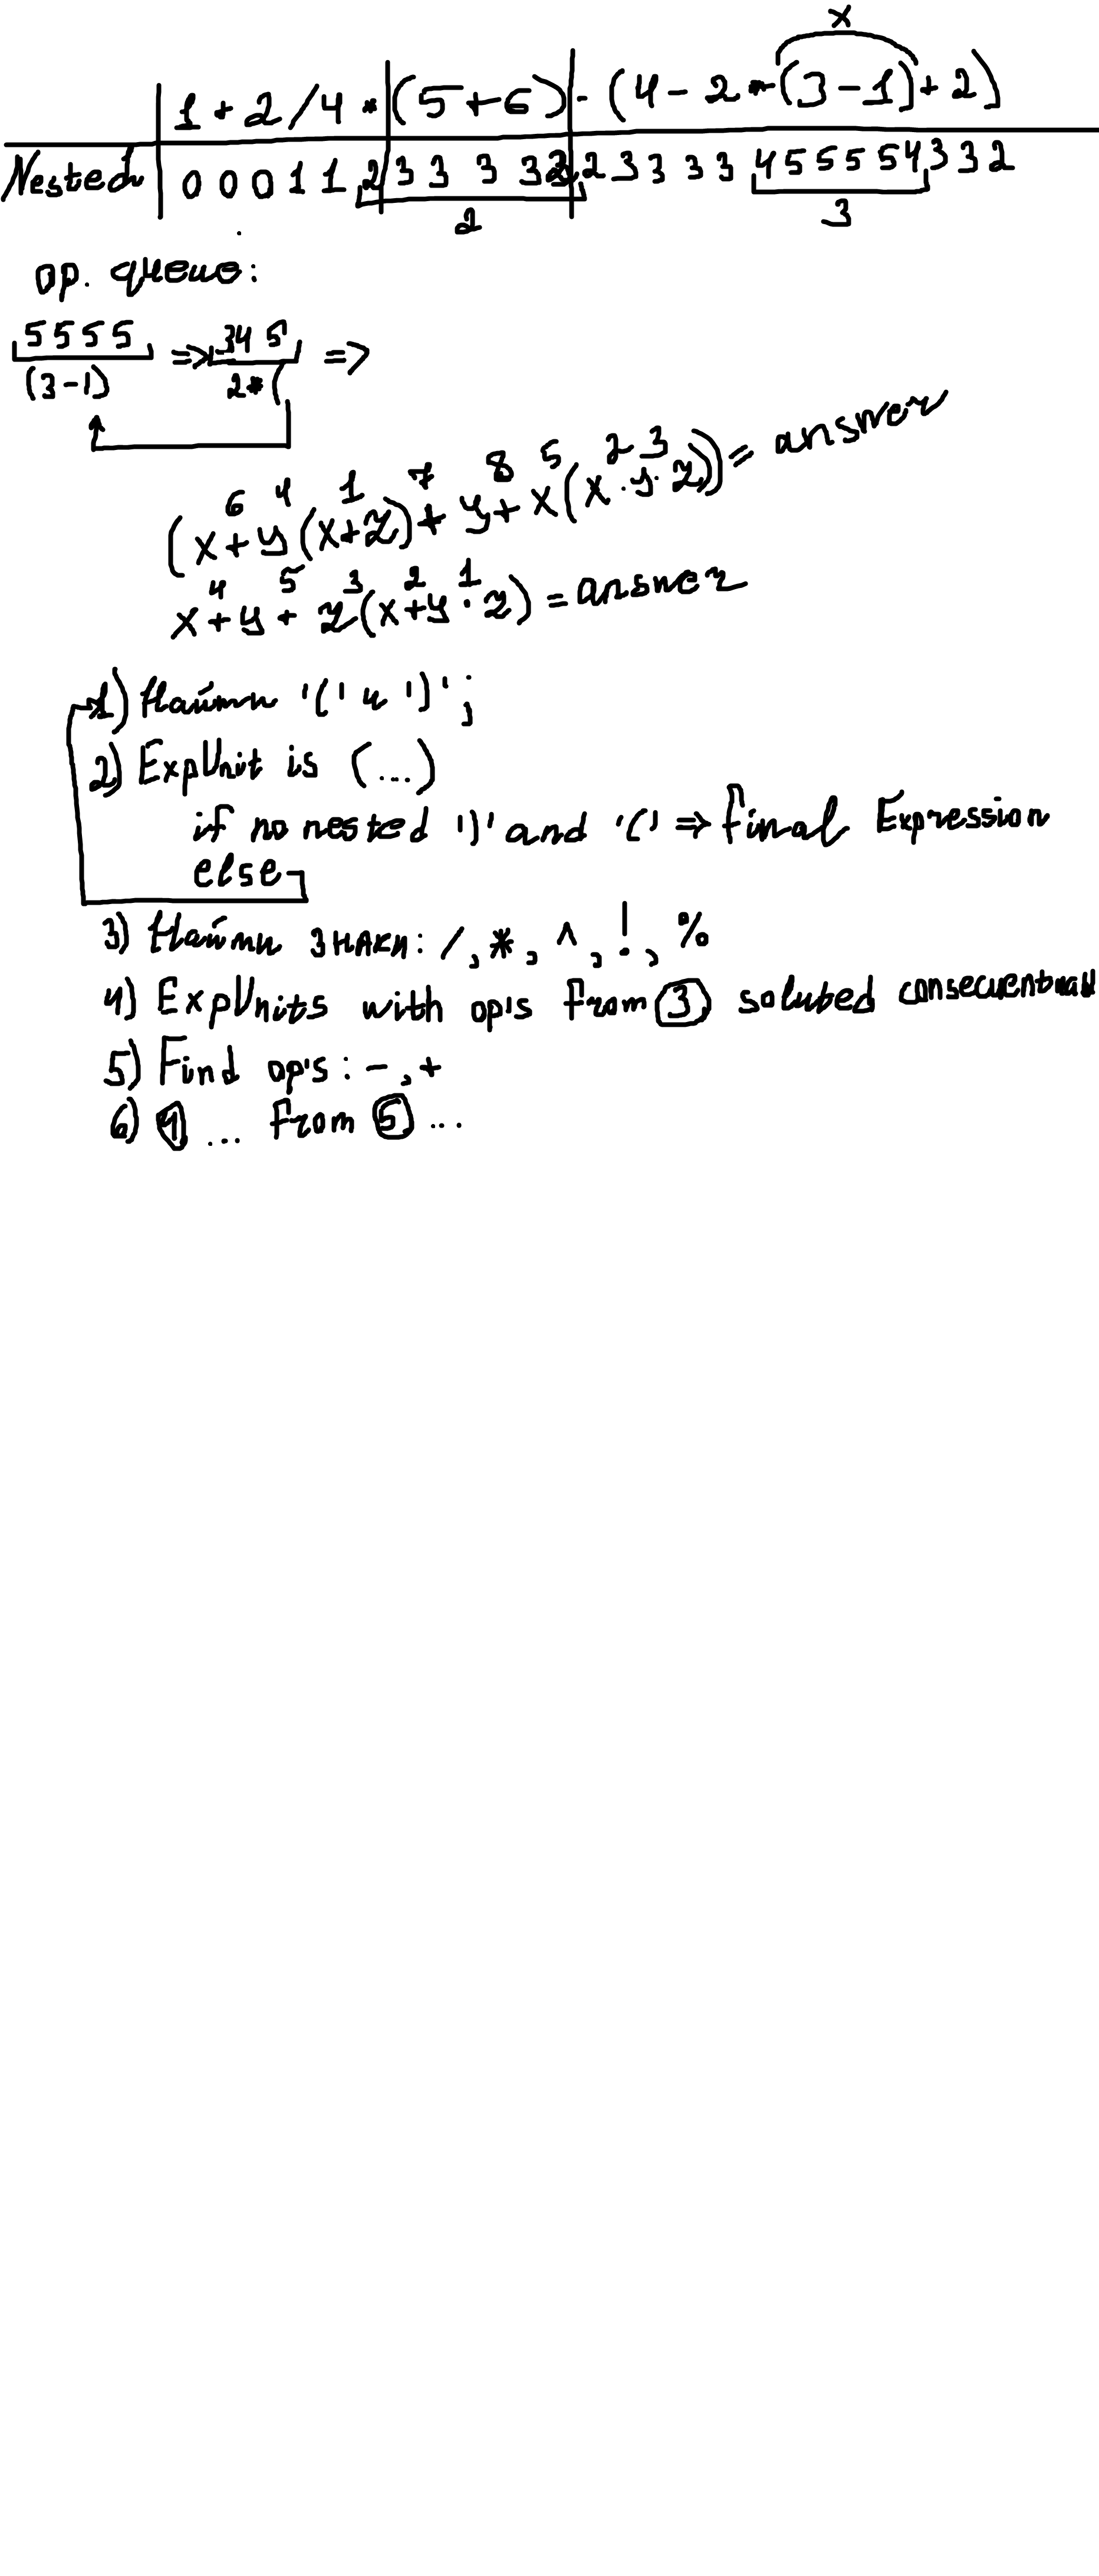 x
1 + 2 / 4 * (5 + 6) - (4 - 2 * (3 - 1) + 2)
Nested 0 0 0 1 1 2 3 3 3 3 2 2 3 3 3 3 4 5 5 5 5 4 3 3 2
2 3
op. queue:
5 5 5 5 => 3 4 5 =>
(3-1) 2*(
6 4 1 7 8 5 2 3
(x+y(x+z)+y+x(x·y·z)) = answer
4 5 3 2 1
x+y+z(x+y·z) = answer
1) Найти '(' и ')';
2) ExpUnit is (...)
if no nested ')' and '(' => final Expression
else
3) Найти знаки: /, *, ^, !, %
4) ExpUnits with op's from 3 soluted consecuentualy
5) Find op's: -, +
6) 4 ... from 5 ...